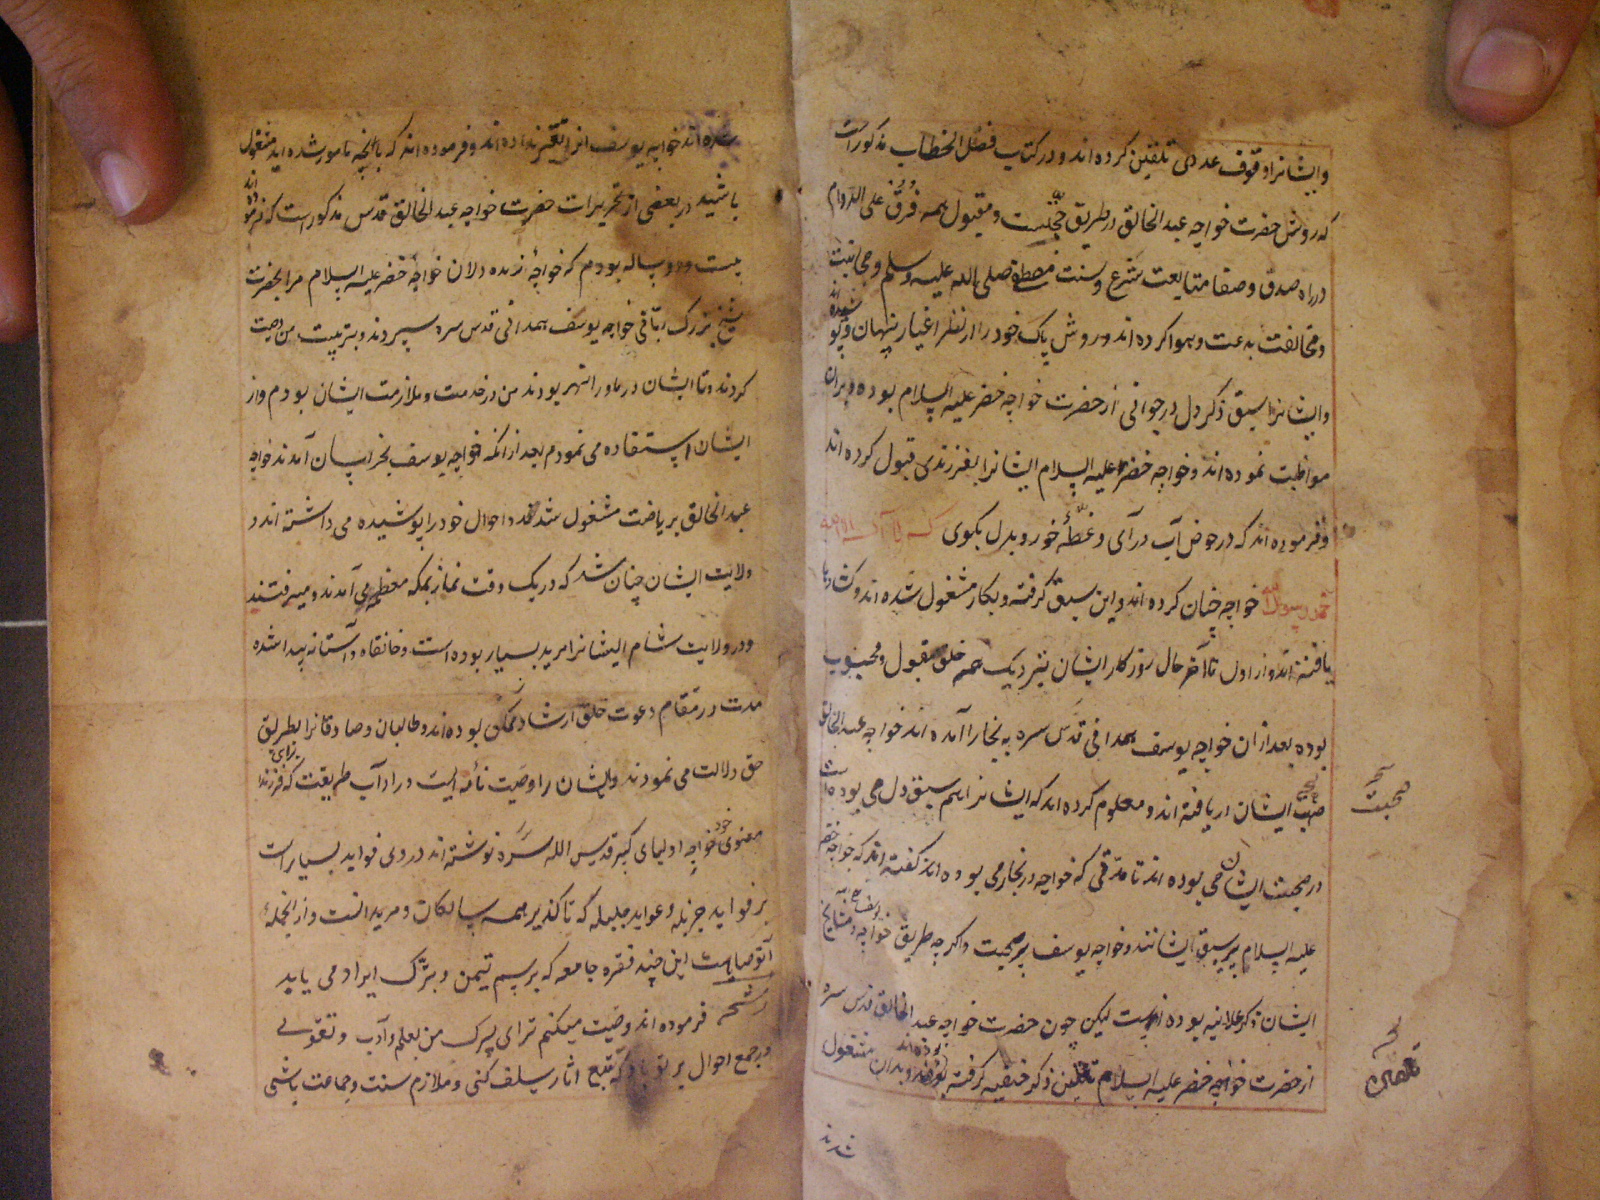 و ایشانرا وقوف عددی تلقین کرده اند و در کتاب فصل الخطاب مذکور است
که روش حضرت خواجه عبد الخالق در طریق حجتست و مقبول همه فرق علی الدوام
در راه صدق و صفا متابعت شرع و سنت مصطفی صلی الله علیه وسلم و مجانبت
و مخالفت بدعت و هوا کرده اند و روش پاک خود را از نظر اغیار پنهان و پوشیده اند
و ایشانرا سبق ذکر دل در جوانی از حضرت خواجه خضر علیه السلام بوده و بران
مواظبت نموده اند و خواجه خضر علیه السلام ایشانرا بفرزندی قبول کرده اند
و فرموده اند که در حوض آب درآی و غطهٔ خور و بدل بگوی
محمد رسول الله خواجه چنان کرده اند و این سبق گرفته و بکار مشغول شده اند و کشادها
یافته اند و از اول تا آخر حال روزکار ایشان نزدیک همه خلق مقبول و محبوب
بوده بعد ازان خواجه یوسف همدانی قدس سره به بخارا آمده اند خواجه عبد الخالق
صحبت ایشان دریافته اند و معلوم کرده اند که ایشانرا هم سبق دل می بوده است
در صحبت ایشان می بوده اند تا مدتی که خواجه در بخارا می بوده اند گفته اند که خواجه خضر
علیه السلام پیر سبق ایشانند و خواجه یوسف پیر صحبت و اکر چه طریق خواجه یوسف و مشایخ
ایشان ذکر علانیه بوده است لیکن چون حضرت خواجه عبد الخالق قدس سره
از حضرت خواجه خضر علیه السلام تلقین ذکر خفیه گرفته بوده اند و بدان مشغول
شدند
صحبت
شده اند خواجه یوسف انرا تغیر نداده اند و فرموده اند که بانچه مامور شده اید مشغول
باشید در بعضی از تحریرات حضرت خواجه عبد الخالق قدس مذکور است که فرموده اند
بیست و دو ساله بودم که خواجهٔ زنده دلان خواجه خضر علیه السلام مرا بحضرت
شیخ بزرگ ربانی خواجه یوسف همدانی قدس سره سپردند و بتربیت من وصیت
کردند و تا ایشان در ماورا النهر بودند من در خدمت و ملازمت ایشان بودم و از
ایشان استفاده می نمودم بعد از انکه خواجه یوسف بخراسان آمدند خواجه
عبد الخالق بریاضت مشغول شدند و احوال خود را پوشیده می داشته اند و
ولایت ایشان چنان شد که در یک وقت نماز بمکه معظمه می آمدند و میرفتند
و در ولایت شام ایشانرا مرید بسیار بوده است و خانقاه و آستانه پیدا شده
مدت در مقام دعوت خلق ارشاد بوده اند و طالبان و صادقانرا بطریق
حق دلالت می نمودند و ایشان را وصیت نامه ایست در آداب طریقت که برای فرزند
معنوی خود خواجه اولیای کبیر قدس الله سره نوشته اند در وی فواید بسیار است
بر فواید جزیله و عواید جلیله که ناکذیر همه سالکان و مریدانست و از انجملهٔ
آن وصایاست این چند فقره جامعه که برسم تیمن و تبرک ایراد می یابد
رشحه فرموده اند وصیت میکنم ترا ای پسرک من بعلم و آدب و تقوی
در جمع احوال بر تو باد که تتبع آثار سلف کنی و ملازم سنت و جماعت باشی